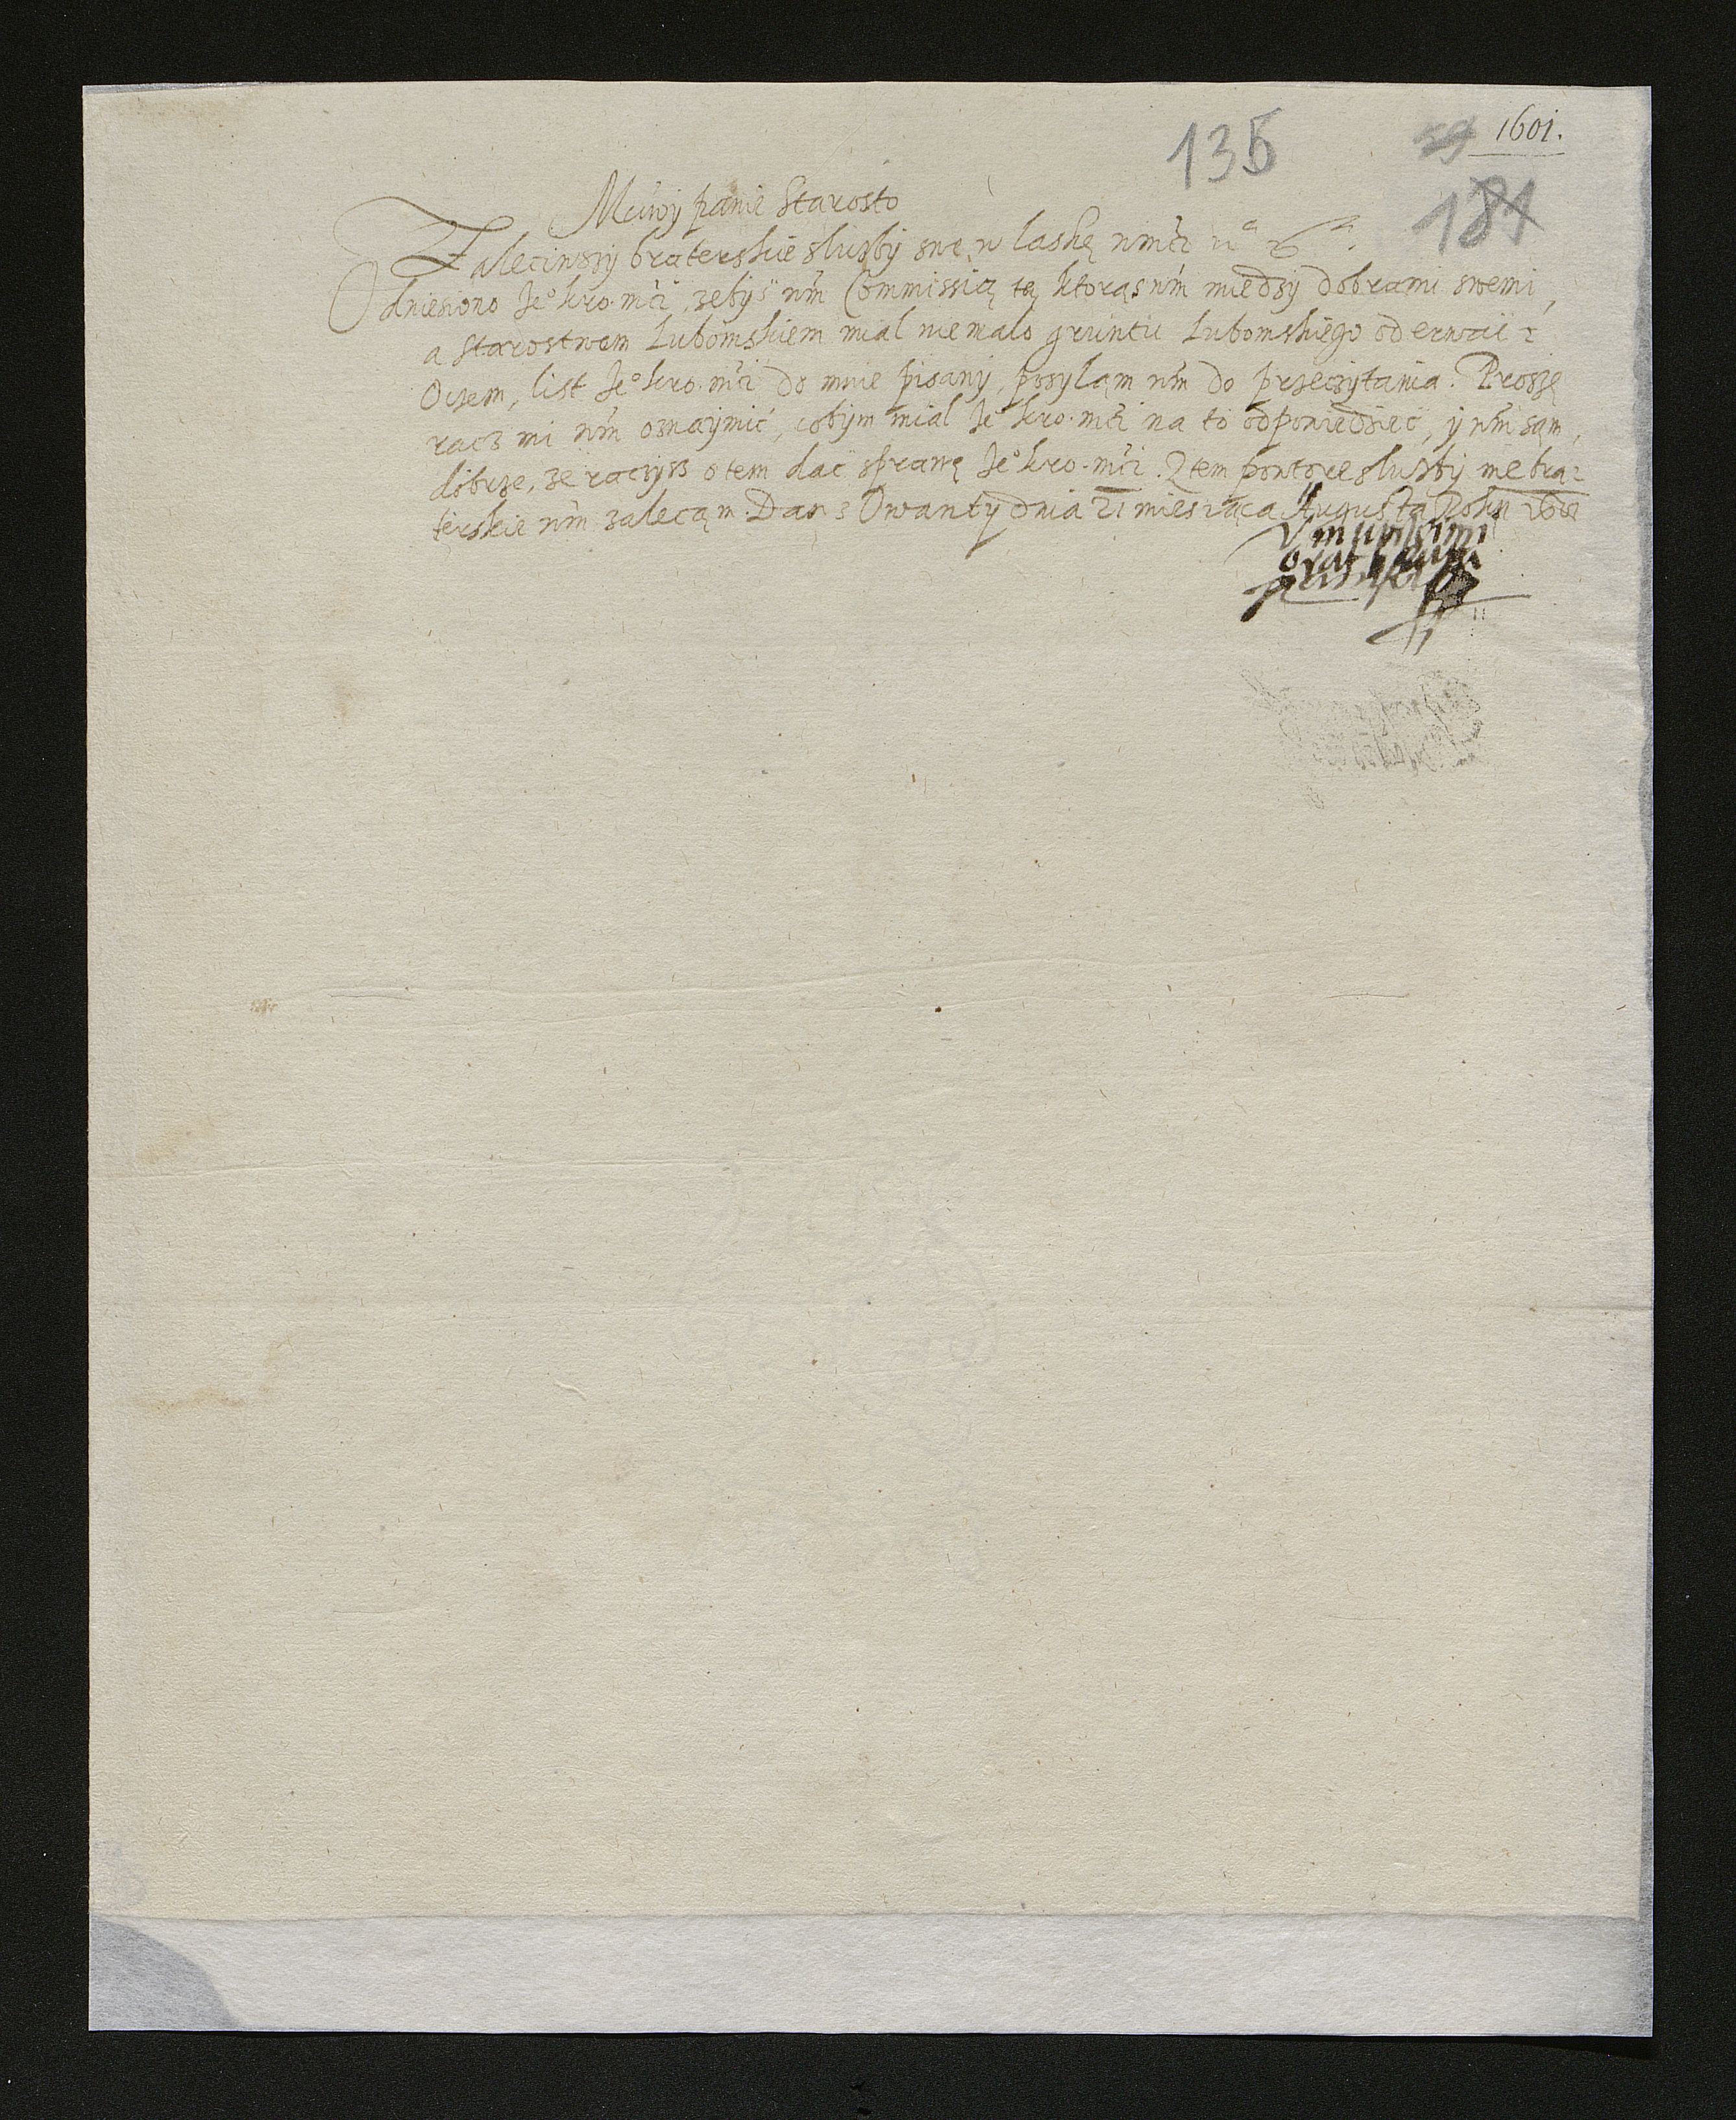 1601.
135
Mciwy panie Starosto
Zaleciwszy braterskie służby swe, w laskę wmći
Odniesiono Jeº kro. mći, zebyś wm̃ Commissią tą ktorąs wm̃ miedzy dobrami swemi,
a Starostwem Lubomskiem mial niemalo gruntu Lubomskiego oderwać:
Oczem, list Jeº kro. mći do mnie pisany, posyląm wm̃ do przeczytania. Proszę
racz mi wm̃ oznaymić, cobym mial Je kro. mći na to odpowiedzieć, y wm̃ sąm,
dobrze, ze raczysz o tem dać sprawę Jeº kro. mći. Ztem powtore służby me bra-
terskie wm̃ zalecąm. Dan z Owanty dnia 21 miesiąca Augusta Roku 1601